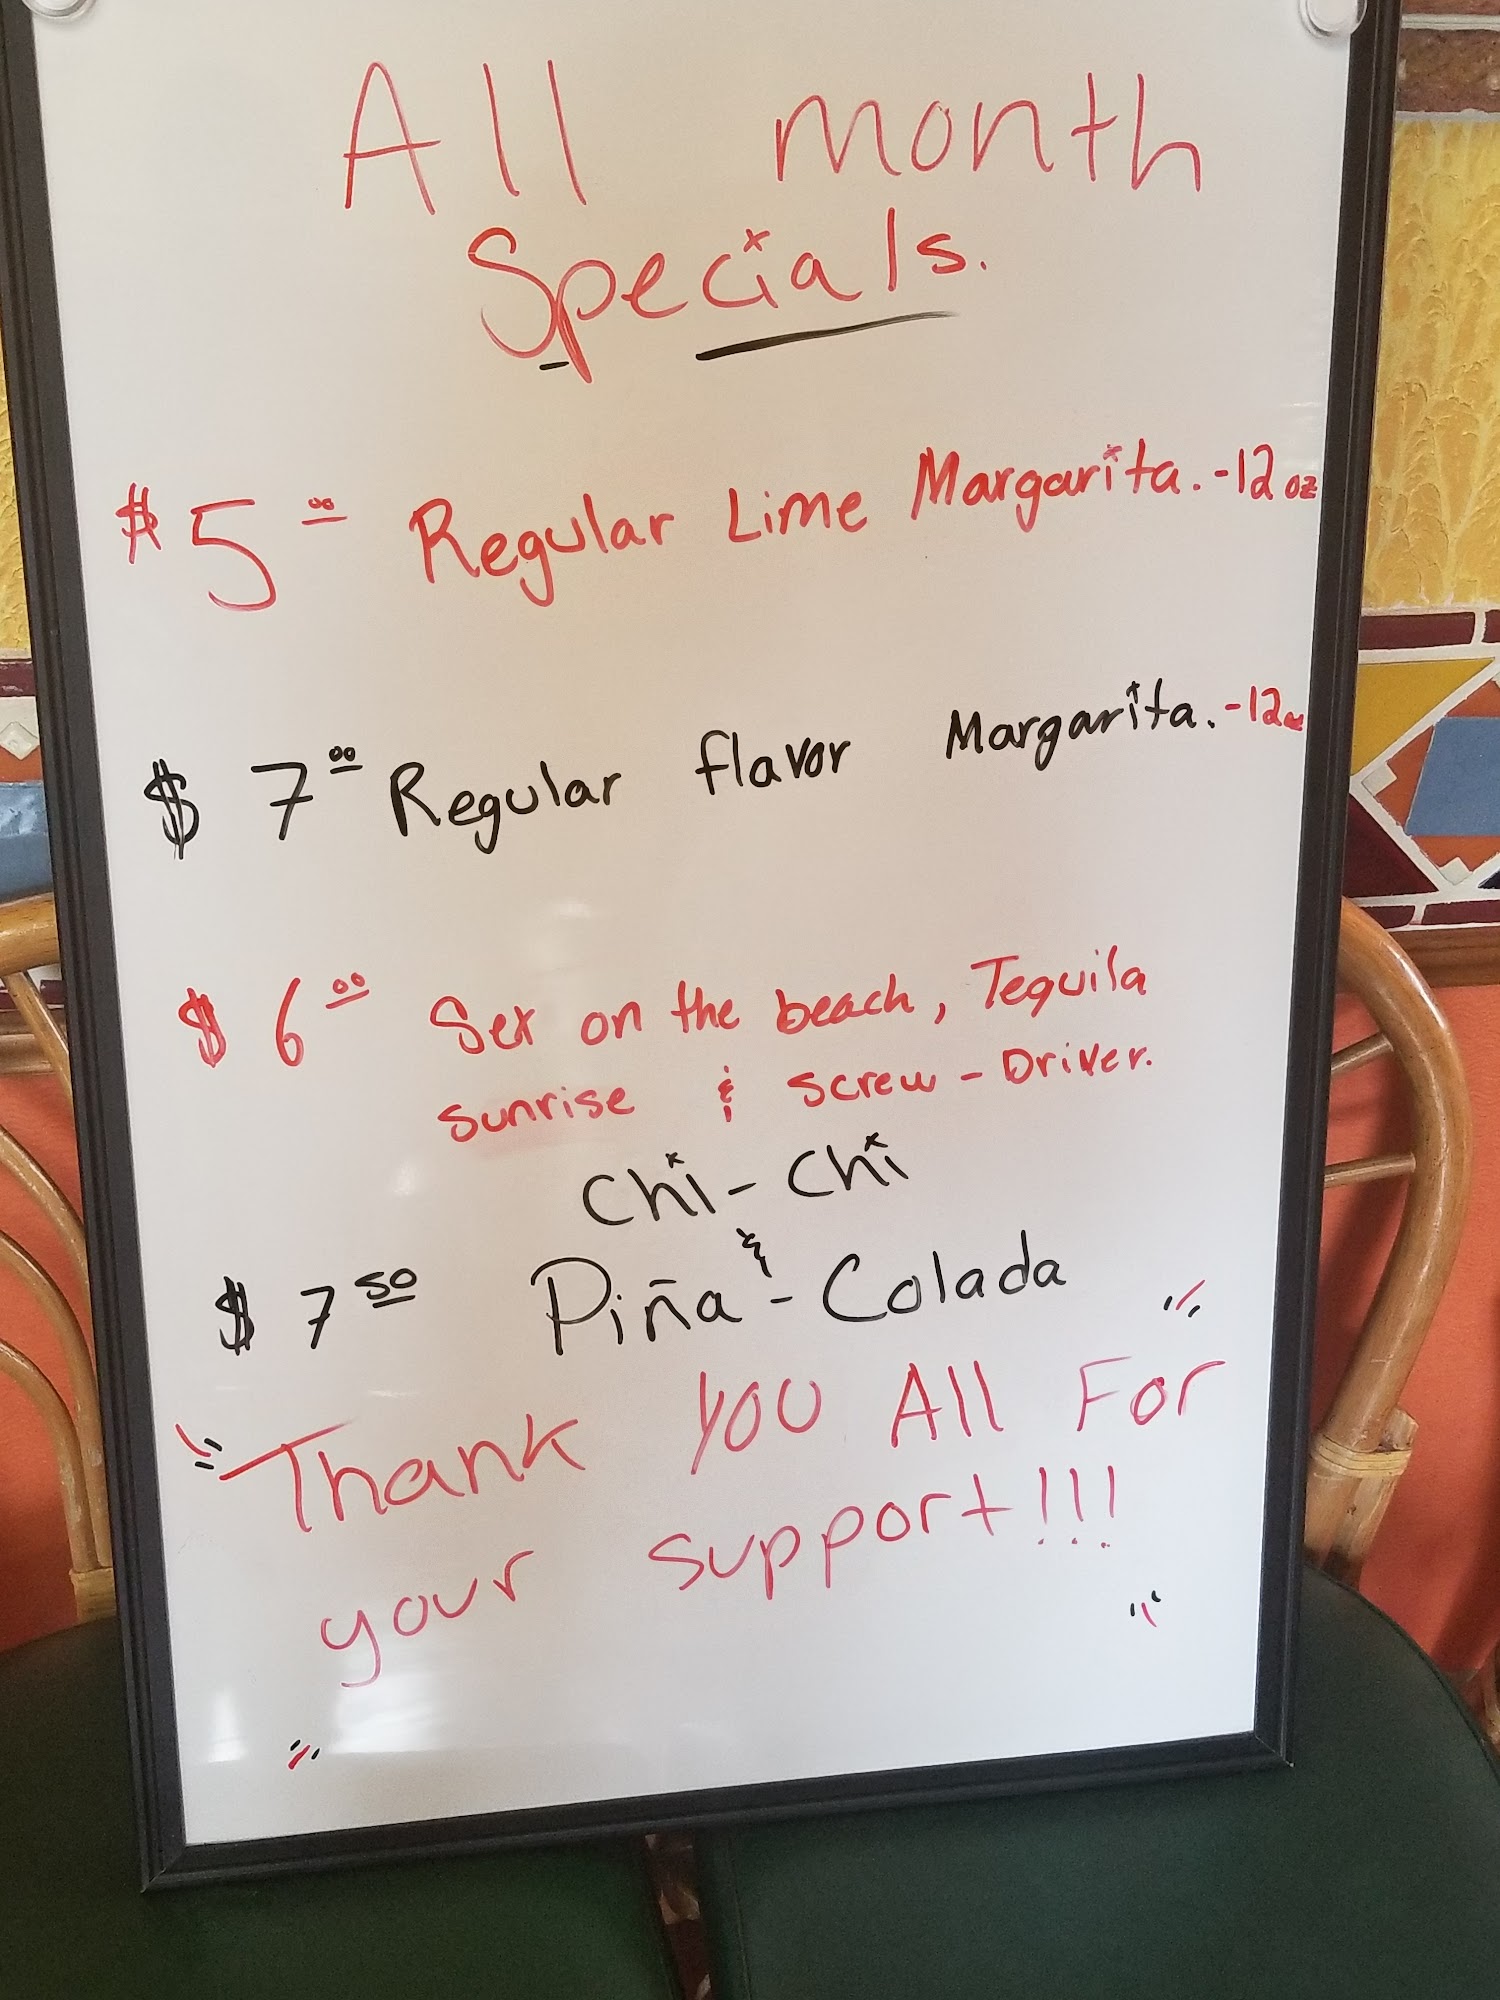 All month
Specials.
$5.00 Regular Lime Margarita. -12 oz
$7.00 Regular flavor Margarita. -12oz
$6.00 Sex on the beach, Tequila
sunrise & Screw-Driver.
Chi-Chi
&
$7.50 Piña-Colada
"Thank you All For
your support!!!"